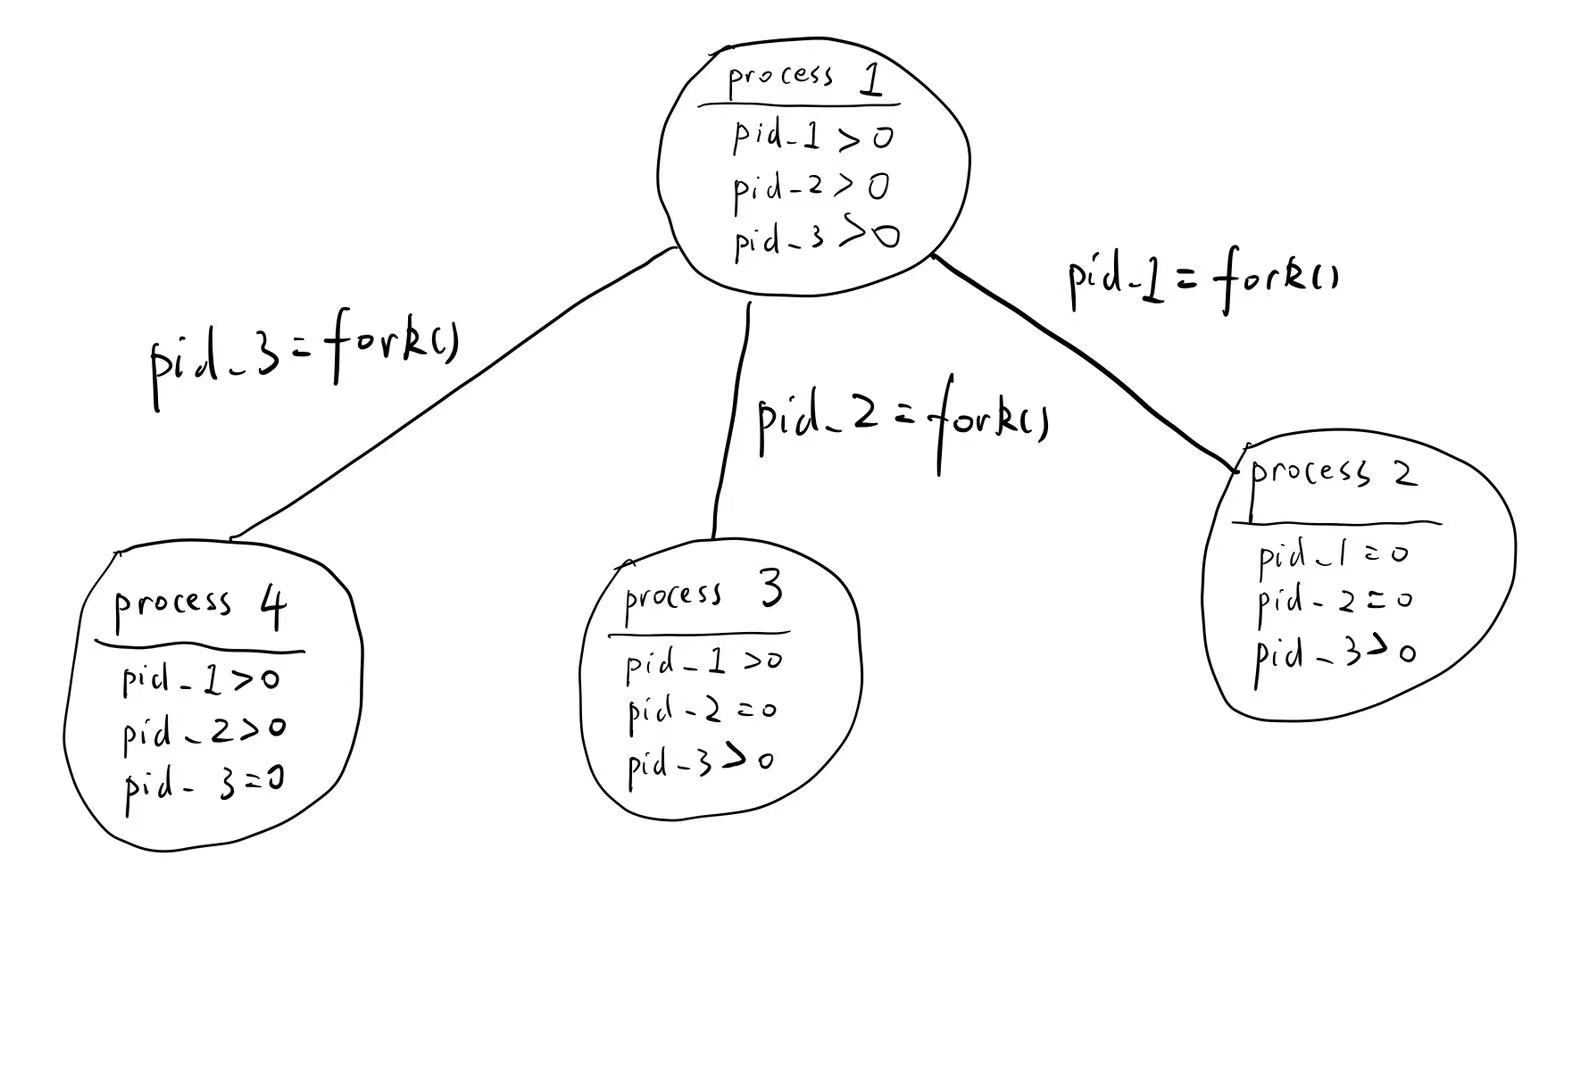 process 1
pid_1 > 0
pid_2 > 0
pid_3 > 0
pid_1 = fork()
pid_3 = fork()
pid_2 = fork()
process 2
pid_1 = 0
pid_2 = 0
pid_3 > 0
process 3
pid_1 > 0
pid_2 = 0
pid_3 > 0
process 4
pid_1 > 0
pid_2 > 0
pid_3 = 0